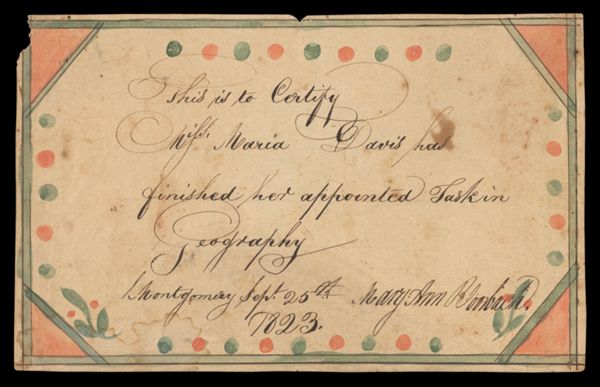 This is to Certify
Miss Maria Davis has
finished her appointed Task in
Geography
Montgomery Sept. 25th Mary Ann
1823.